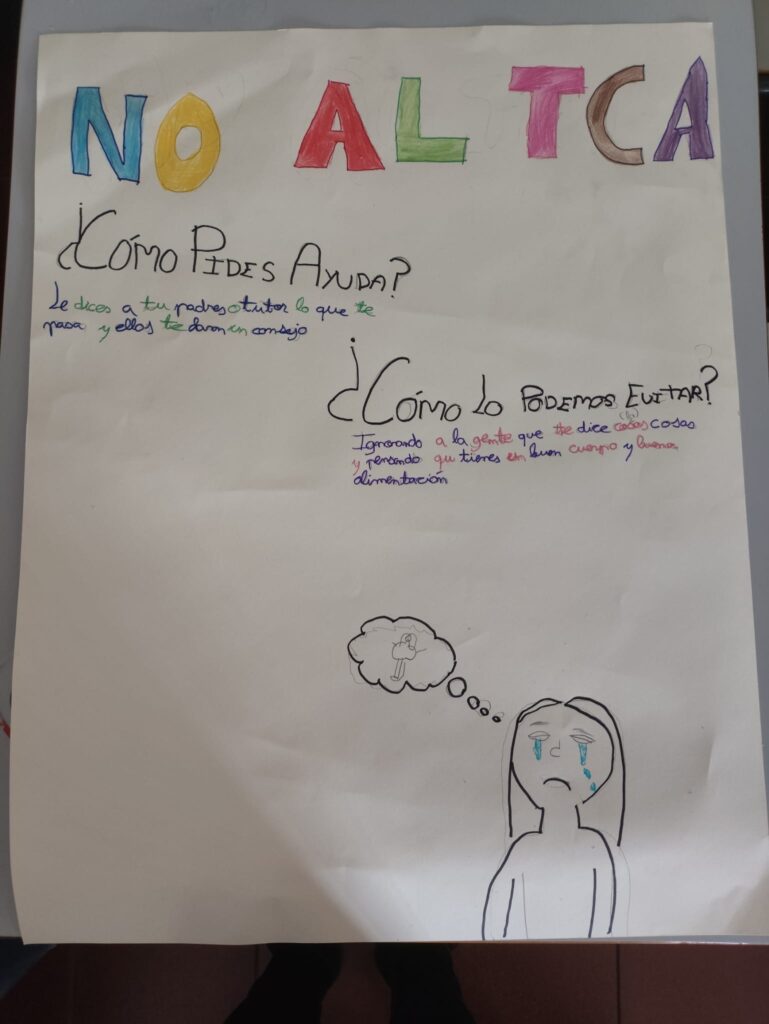 NO AL TCA
¿CÓMO PIDES AYUDA?
Le dices a tu padres o tutor lo que te
pasa y ellos te daran un consejo
¿CÓMO LO PODEMOS EVITAR?
Ignorando a la gente que te dice cosas cosas
y pensando qu tienes un buen cuerpo y buena
alimentación